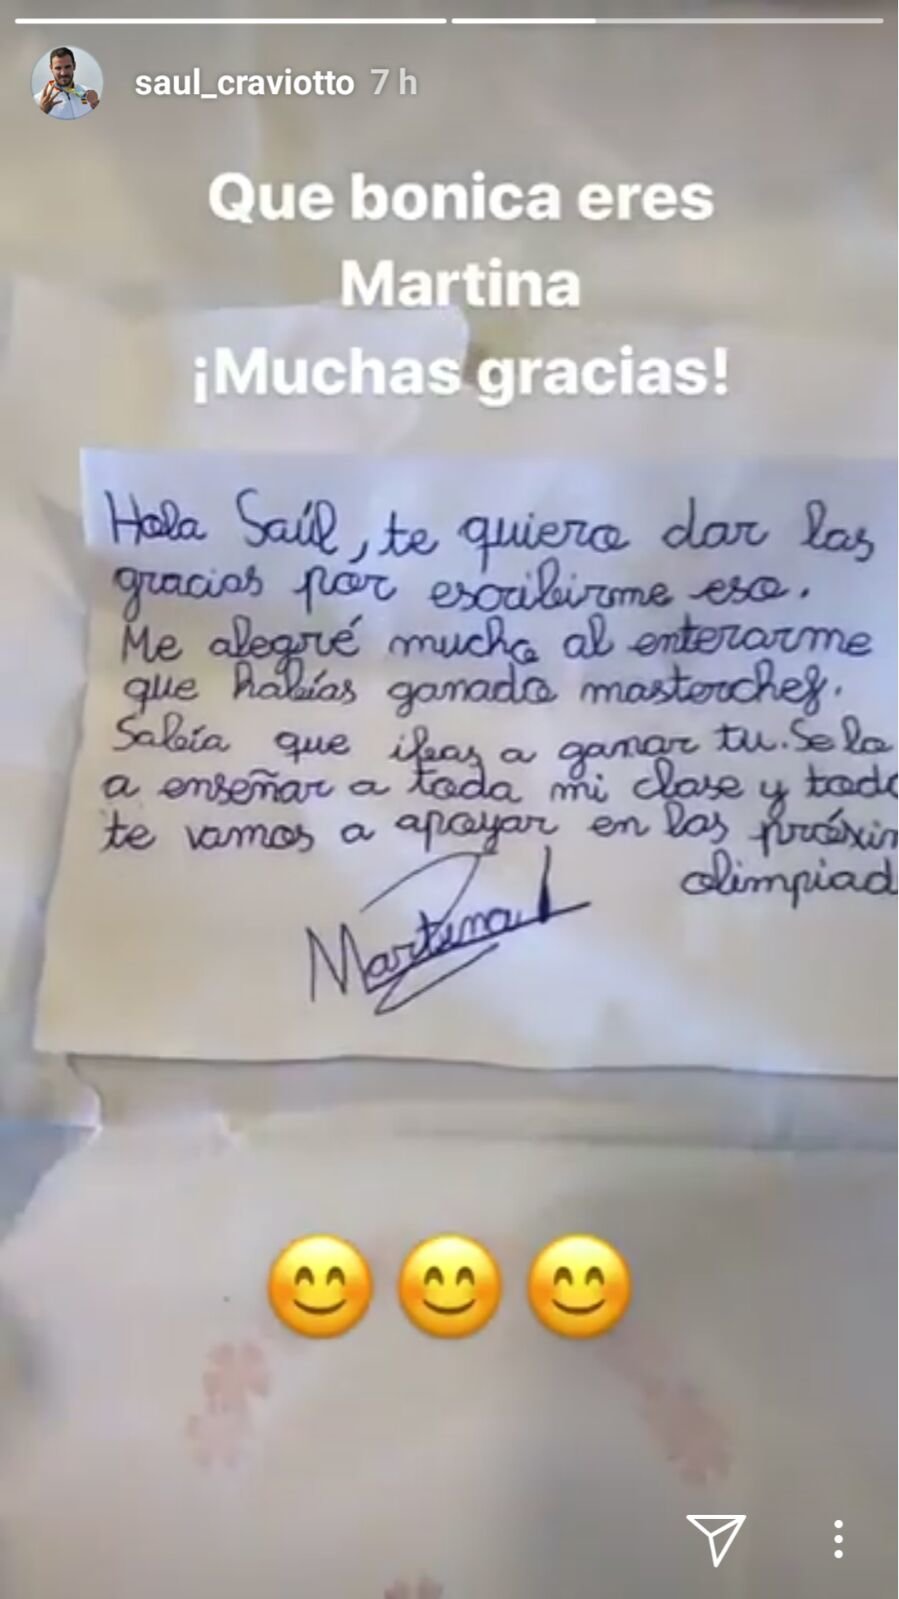 saul_craviotto 7 h
Que bonica eres
Martina
¡Muchas gracias!
Hola Saúl, te quiero dar las
gracias por escribirme eso.
Me alegré mucho al enterarme
que habías ganado masterchef.
Sabía que ibas a ganar tu. Se lo
a enseñar a toda mi clase y todo
te vamos a apoyar en las próxim
olimpiad
Martina